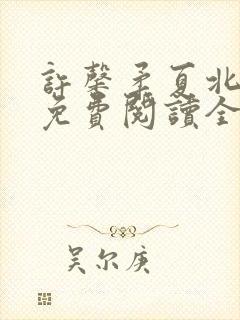 許馨矛夏北
免費閱讀全
吴尔庚